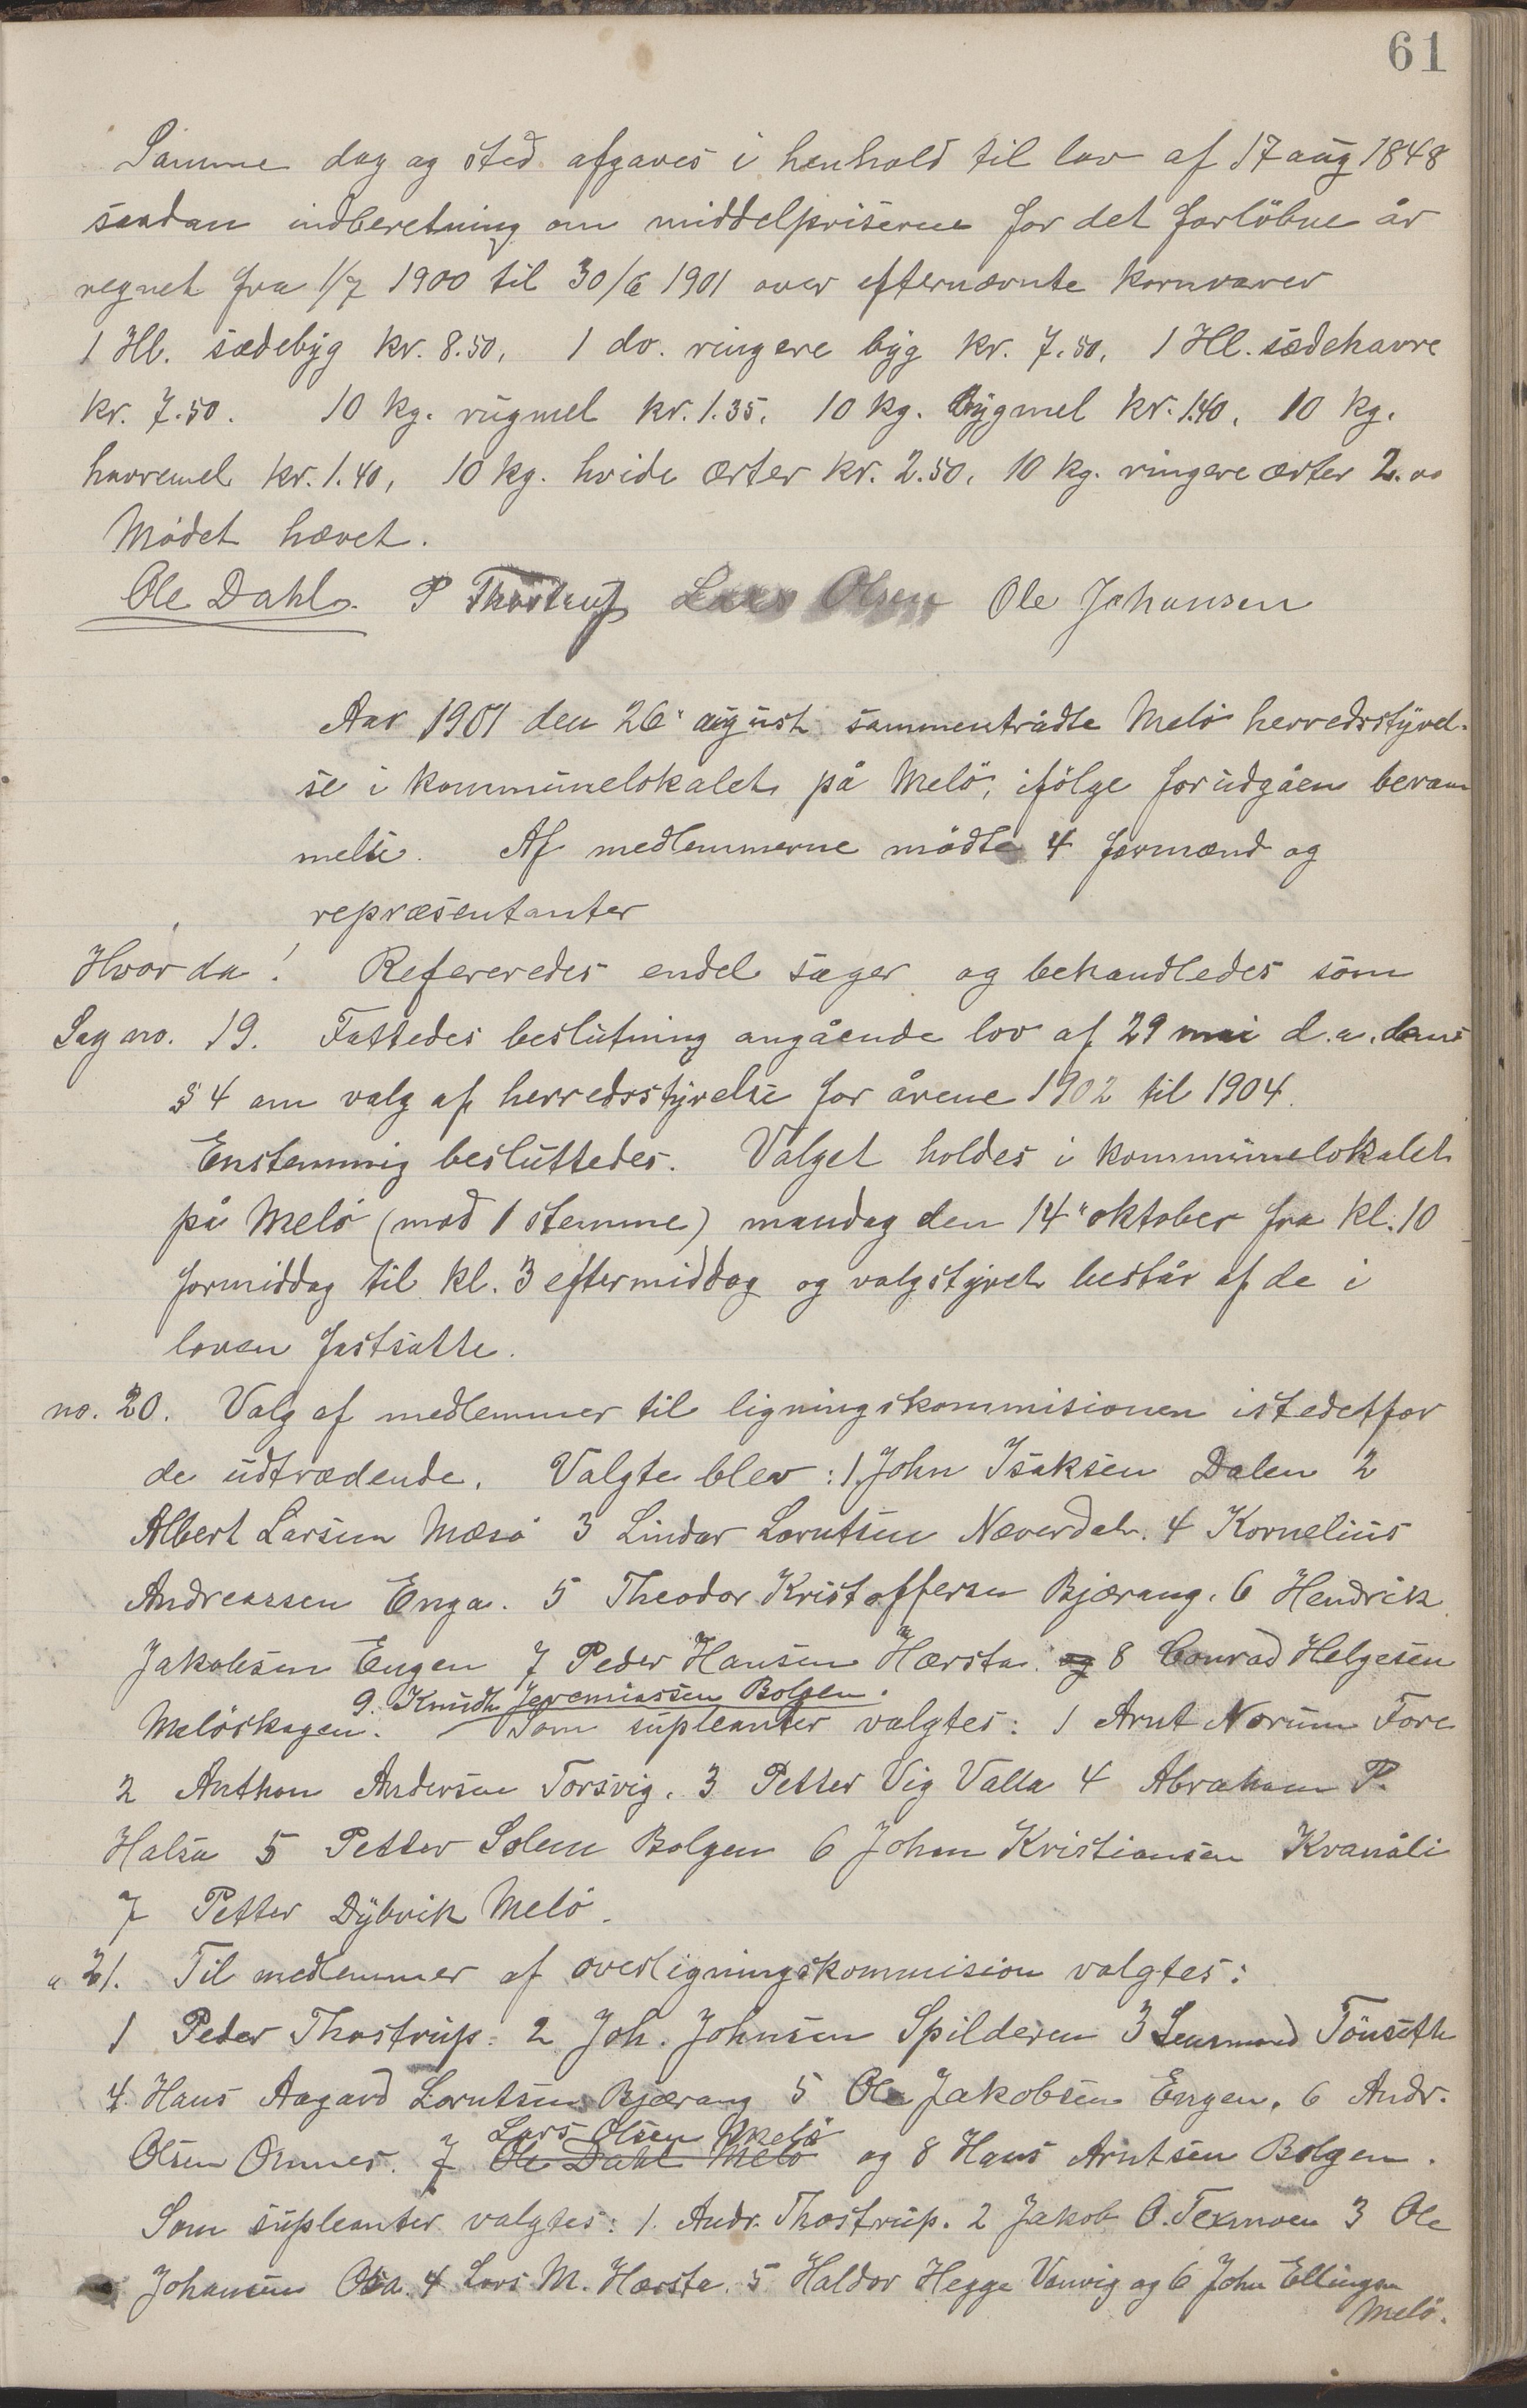 61
Samme dag og sted afgaves i henhold til lov af 17 aug 1848
saadan indberetning om middelpriserne for det forløbne år
regnet fra 1/7 1900 til 30/6 1901 over efternævnte kornvarer
1 Hl. sædebyg kr. 8.50, 1 do. ringere byg kr. 7.50, 1 Hl. sædehavre
kr. 7.50. 10 kg. rugmel kr. 1.35. 10 kg. bygmel kr. 1.40, 10 kg.
havremel kr. 1.40, 10 kg. hvide ærter kr. 2.50, 10 kg. ringere ærter 2.00
Mødet hævet.
Ole Dahl. P Thostrup Lars Olsen Ole Johansen
Aar 1901 den 26" august sammentrådte Melö herredsstyrel-
se i kommunelokalet på Melö, ifölge forudgåen beram
melse. Af medlemmerne mödte 4 formænd og
repræsentanter
Hvorda! Refereredes endel sager og behandledes som
Sag no. 19. Fattedes beslutning angående lov af 29 mai d.a. dens
§ 4 om valg af herredsstyrelse for årene 1902 til 1904.
Enstemmig besluttedes. Valget holdes i kommunelokalet
på Melö (mod 1 stemme) mandag den 14" oktober fra kl. 10
formiddag til kl. 3 eftermiddag og valgstyret består af de i
loven fastsatte.
no. 20. Valg af medlemmer til ligningskommisionen istedetfor
de udtrædende. Valgte blev: 1. John Isaksen Dalen 2
Albert Larsen Mæsö 3 Lindor Lorntsen Næverdal. 4 Kornelius
Andreassen Enga. 5 Theodor Kristoffersen Bjærang. 6 Hendrik
Jakobsen Engen 7 Peder Hansen Hærsta. og 8 Conrad Helgesen
9. Knudt Jeremiassen Bolgen.
Melöskagen. Som supleanter valgtes: 1 Arnt Norum Fore
2 Anthon Andersen Torsvig. 3 Petter Vig Valla 4 Abraham P.
Halsa 5 Petter Solem Bolgen 6 Johan Kristiansen Kvanåli
7 Petter Dybvik Melö.
" 21. Til medlemmer af overligningskommision valgtes:
1 Peder Thostrup. 2 Joh. Johnsen Spilderen 3 Lensmand Tönseth
4. Hans Aagard Lorntsen Bjærang 5 Ole Jakobsen Engen. 6 Andr.
Lars Olsen Melö
Olsen Ornes. 7 Ole Dahl Melö og 8 Hans Arntsen Bolgen.
Som supleanter valgtes: 1. Andr. Thostrup. 2 Jakob O. Texmoen 3 Ole
Johansen Osa. 4 Lars M. Hærsta. 5 Haldor Hegge Vanvig og 6 John Ellingsen
Melö.